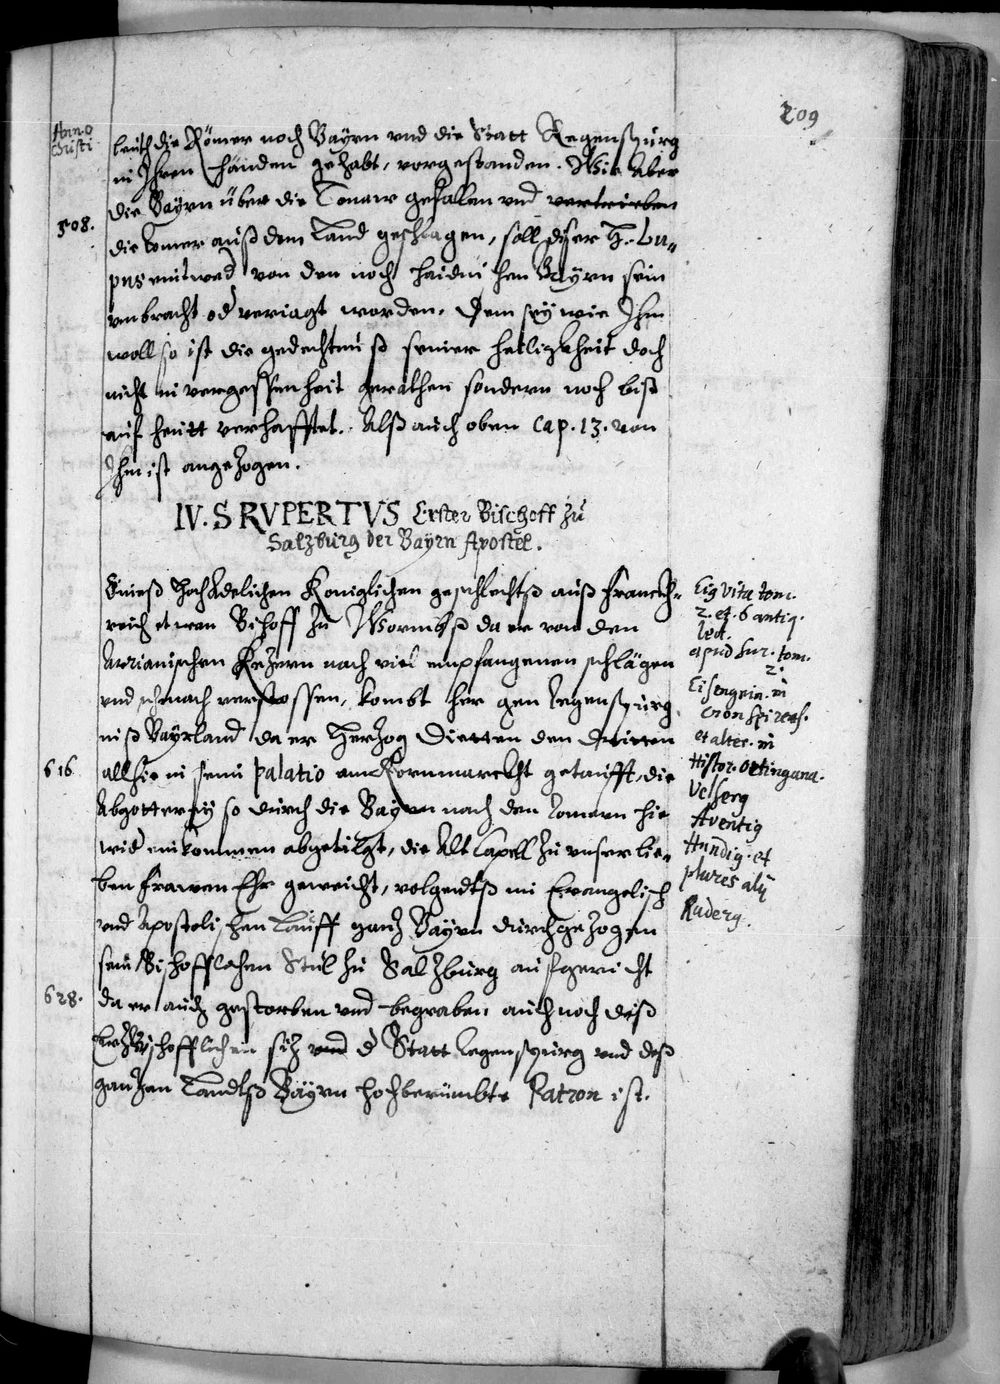 209
Anno
Christi
leüth die Römer noch Bayrn vnd die Statt Regenspurg
in Ihren händen gehabt, vorgestanden. Wie Aber
die Bayrn über die Tonaw gefallen vnd vertrieben
508.
die Romer auß dem Land geschlagen, soll diser H. Lu„
pus entwed von den noch haidnischen Bayrn sein
vmbracht od veriagt worden. Dem sey wie Ihm
woll so ist die gedechtnuß seiner heiligkheit doch
nicht in vergessenheit gerathen sondern noch biß
auf heütt verhafftet. Alß auch oben Cap. 13. von
Ihm ist angezogen.
IV. S RVPERTVS Erster Bischoff zu
Salzburg der Bayrn Apostel.
Eineß Hoch Adelichen Koniglichen geschlechtß auß Franckh„
reich etwan Bischoff zu Wormbß da er von den
Arrianischen Kezern nach viel empfangenen schlägen
vnd schmach verstossen, kombt her gen Regenspurg
inß Bayrland da er Herzog Dietten den Dritten
616
allhie in seim palatio am Kornmarckht getaufft, die
Abgotterey so durch die Bayrn nach den Romern hie
wid einkommen abgetilgt, die Alt Capell zu vnser lie„
ben Frawen Ehr geweicht, volgendtß im Evangelisch
vnd Apostolischen Lauff ganz Bayrn durchgezogen
sein Bischofflichen Stul zu Salzburg aufgericht
628.
da er auch gestorben vnd begraben, auch noch diß
Erzbischofflichen siz vnd d Statt Regenspurg vnd deß
ganzen Landtß Bayrn hochberümbte Patron ist.
Eig vita tom.
2. et. 6 antiq.
lect.
apud Sur. tom.
2.
Eisengrin. in
cron spirens.
et alter. in
Histor. Oetingana.
Velserg
Aventig
Hundig. et
plures alij
Raderg.